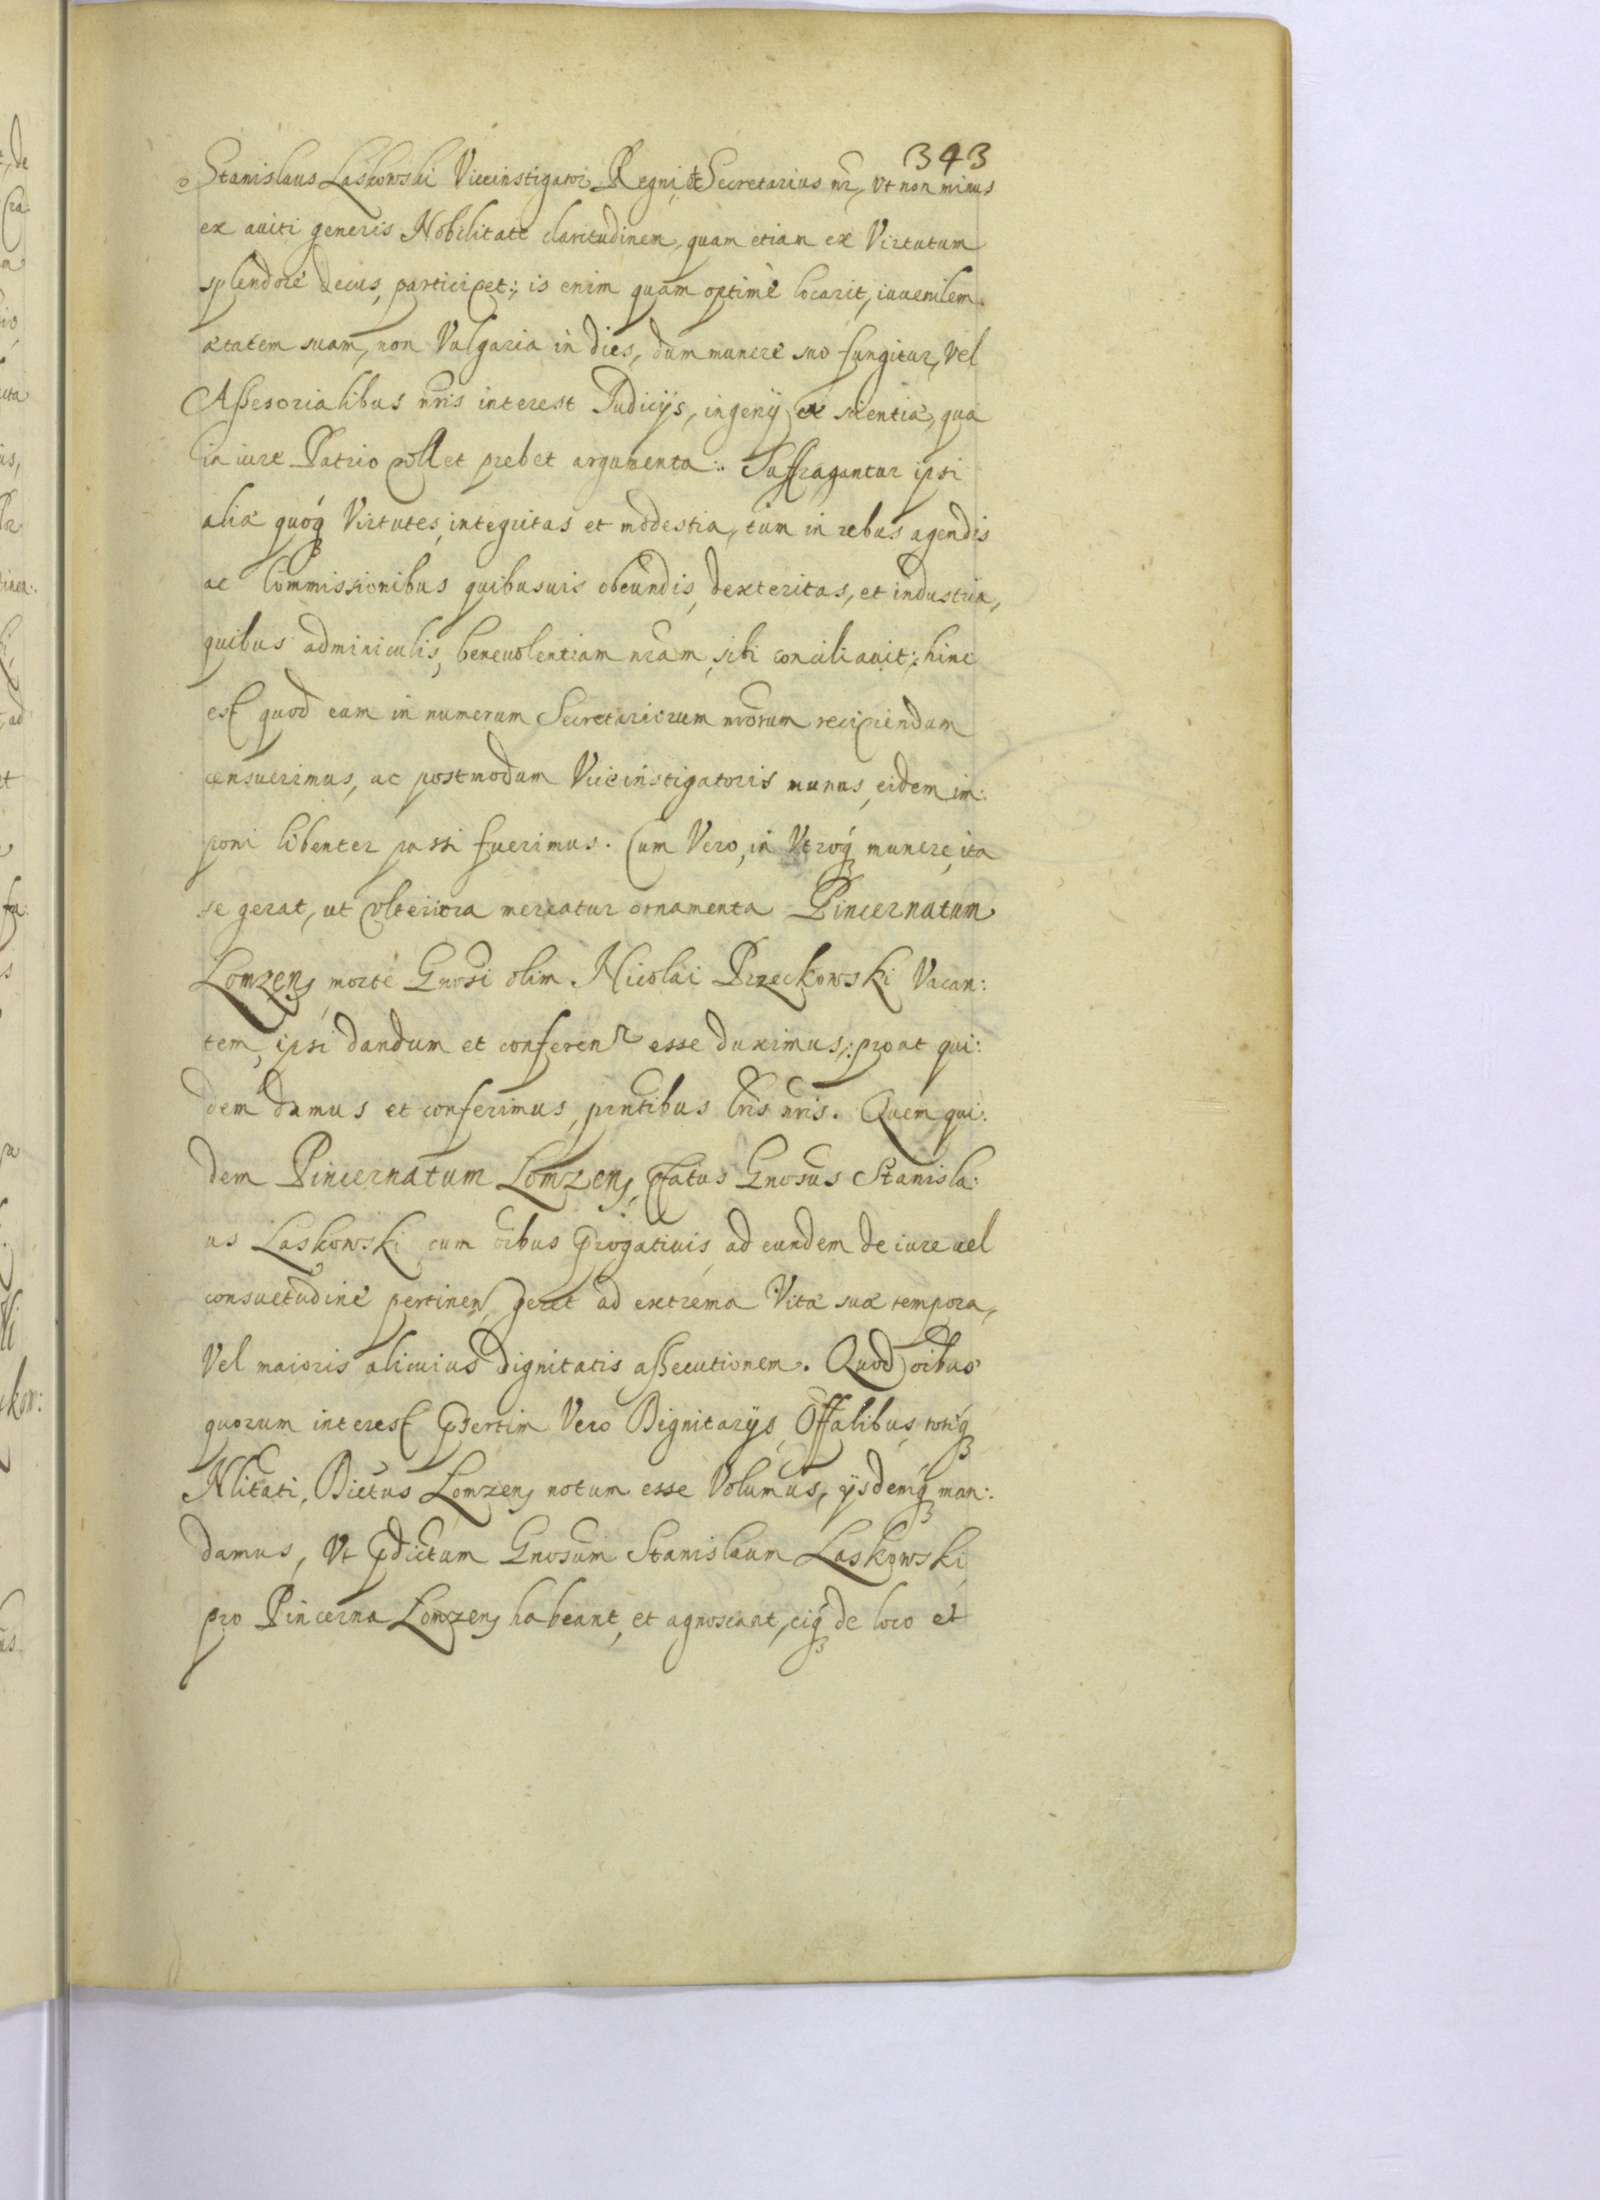 343
Stanislaus Laskowski Viceinstigator Regni et Secretarius nr, Vt non minus
ex auiti generis Nobilitate claritudinem, quam etiam ex Virtutum
splendore decus, participet:, is enim quam optimè locarit, iuuenilem
ætatem suam, non Vulgaria in dies, dum munere suo fungitur, Vel
Assesorialibus nris interest Judicijs, ingenij ex scientiæ, qua
in iure Patrio pollet prebet argumenta:. Suffragantur ipsi
aliæ quóq Virtutes, integritas et modestia, tum in rebus agendis
ac Commissionibus quibusuis obeundis, dexteritas, et industria,
quibus adminiculis, beneuolentiam nram, sibi conciliauit:, hinc
est quod eum in numerum Secretariorum nrorum recipiendum
censuerimus, ac postmodum Viceinstigatoris munus, eidem im:
poni libenter passi fuerimus. Cum Vero, in Vtroq munere, ita
se gerat, ut ulteriora mereatur ornamenta Pincernatum
Lomzen, morte Gnosi olim Nicolai Przeckowski Vacan:
tem, ipsi dandum et conferen esse duximus,: prout qui:
dem damus et conferimus, prntibus lris nris. Quem qui:
dem Pincernatum Lomzen, pfatus Gnosus Stanisla:
us Laskowski, cum oibus progatiuis, ad eundem de iure uel
consuetudine pertinen, geret ad extrema Vitæ suæ tempora,
Vel maioris alicuius dignitatis assecutionem. Quod oibus
quorum interest psertim Vero Dignitarijs, Offalibus, totiq
Nlitati, Dictus Lomzen, notum esse Volumus, ijsdemq man:
damus, Vt pdictum Gnosum Stanislaum Laskowski,
pro Pincerna Lomzen, habeant, et agnoscant, eiq de loco et